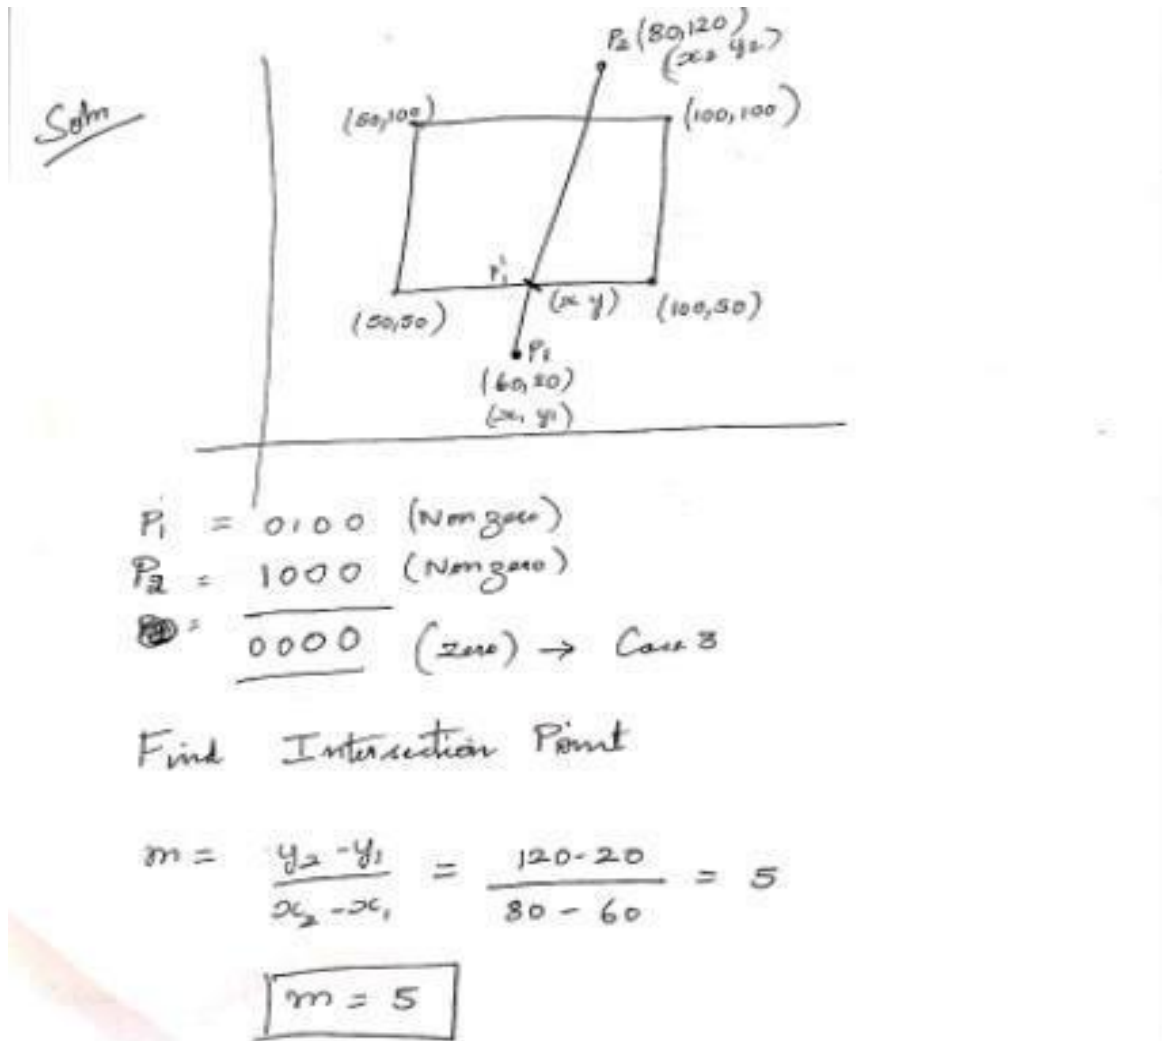 Soln
P2 (80,120)
(x2 y2)
(50,100)
(100,100)
P1'
(x y)
(50,50)
(100,50)
P1
(60,20)
(x1 y1)
P1 = 0100 (Non zero)
P2 = 1000 (Non zero)
=
0000 (Zero) → Case 3
Find Intersection Point
m = y2 - y1 / x2 - x1 = 120 - 20 / 80 - 60 = 5
m = 5